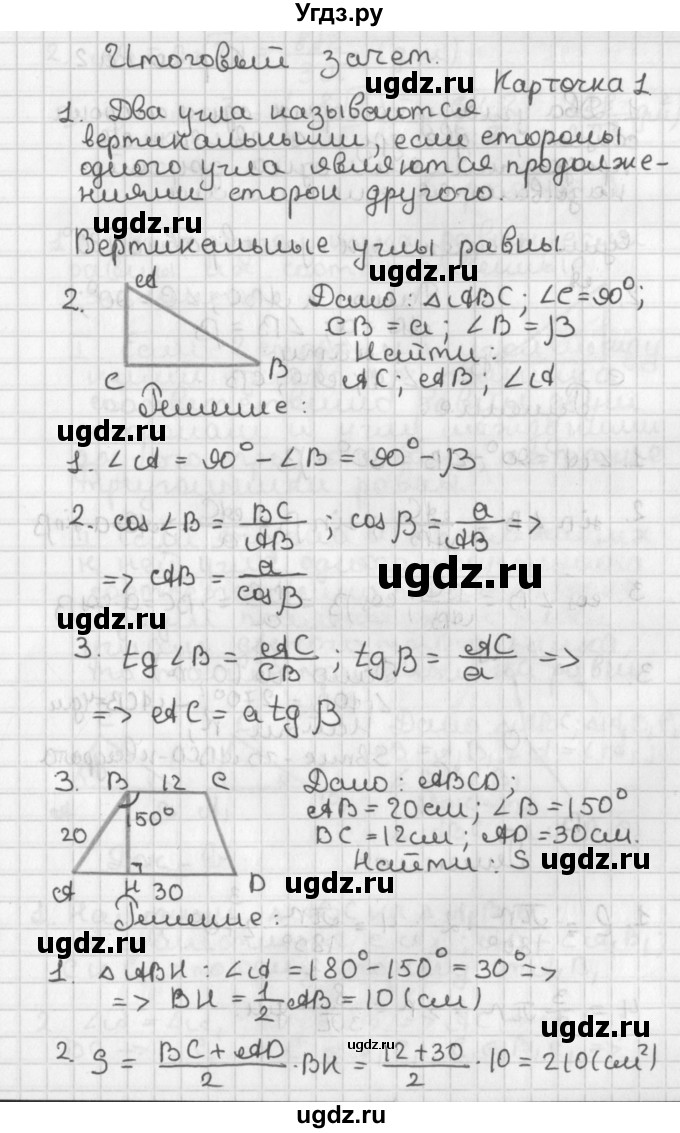 Угдз.ру
Итоговый зачет.
ugdz.ru
Карточка 1
1. Два угла называются
вертикальными, если стороны
одного угла являются продолже-
ниями сторон другого.
ugdz.ru
Вертикальные углы равны
ugdz.ru
2.
A
C
B
Дано: △ABC; ∠C = 90°;
CB = a; ∠B = β
Найти:
AC; AB; ∠A
Решение:
ugdz.ru
1. ∠A = 90° - ∠B = 90° - β
2. cos ∠B = BC/AB; cos β = a/AB =>
=> AB = a/cos β
ugdz.ru
ugdz.ru
3. tg ∠B = AC/CB; tg β = AC/a =>
=> AC = a tg β
3. B 12 C
150°
20
A H 30 D
Дано: ABCD;
AB = 20 см; ∠B = 150°
BC = 12 см; AD = 30 см.
Найти: S
ugdz.ru
ugdz.ru
Решение:
ugdz.ru
1. △ABH: ∠A = 180° - 150° = 30° =>
=> BH = 1/2 AB = 10 (см)
ugdz.ru
2. S = (BC + AD)/2 · BH = (12 + 30)/2 · 10 = 210 (см²)
ugdz.ru
ugdz.ru